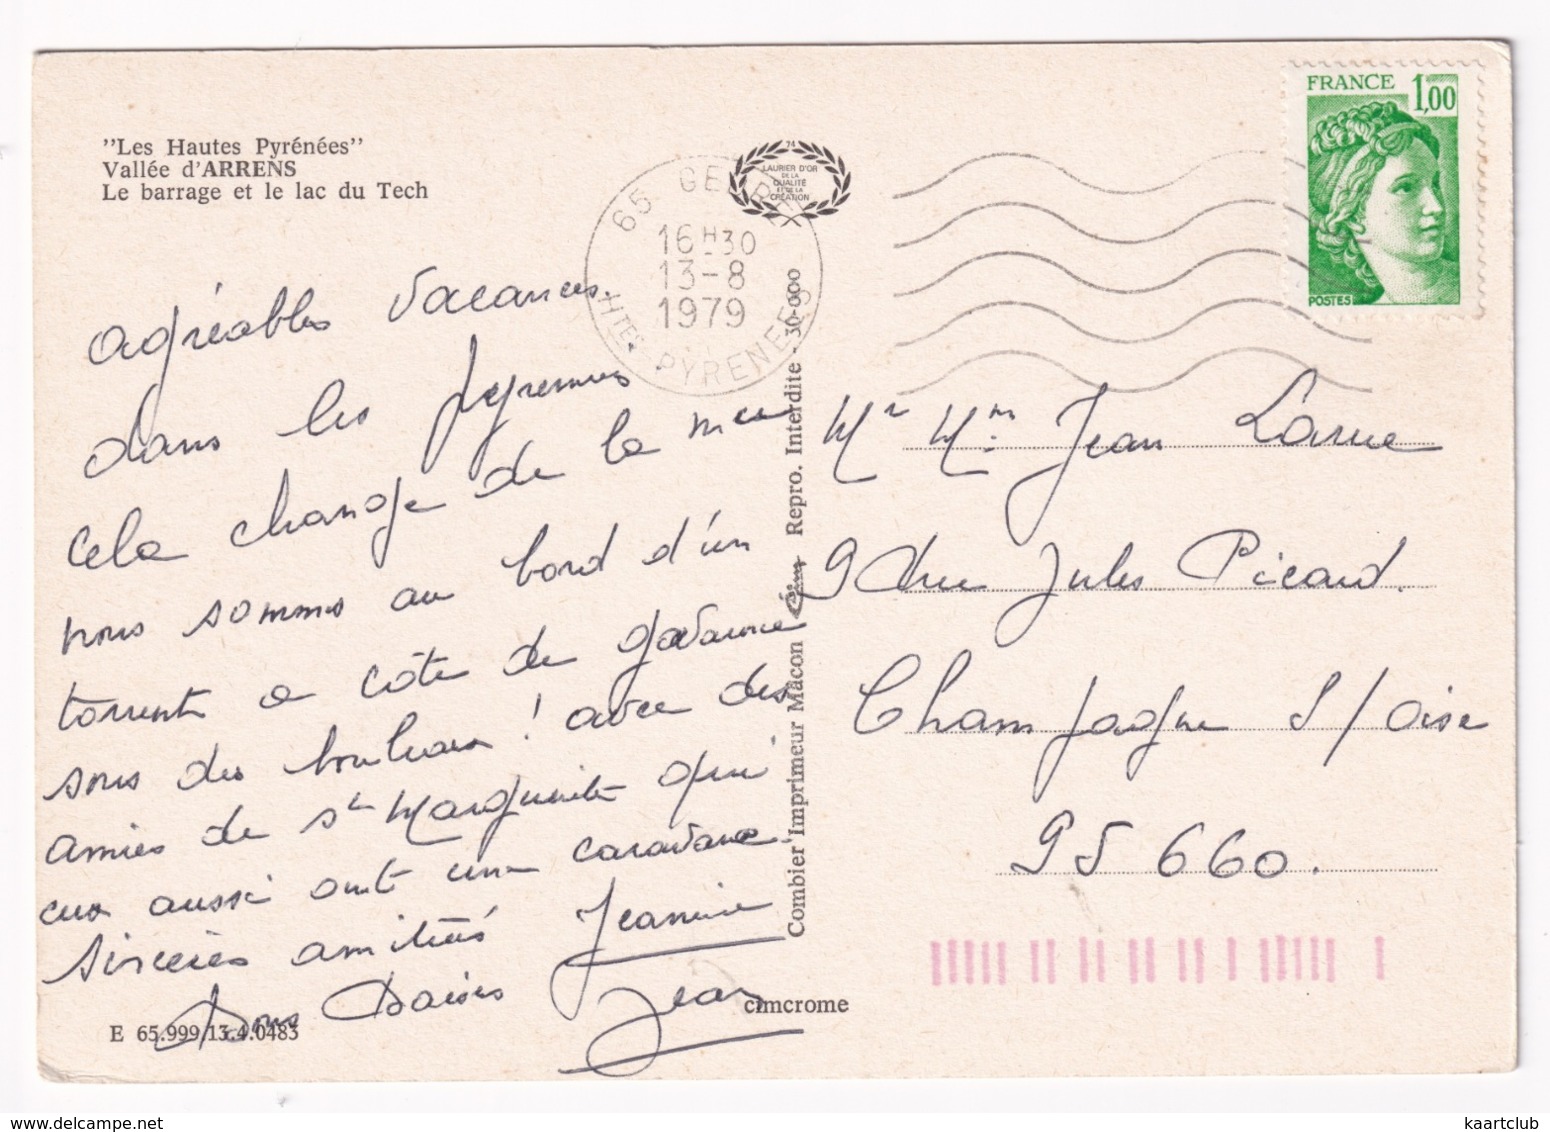 "Les Hautes Pyrénées"
Vallée d'ARRENS
Le barrage et le lac du Tech
agréables vacances.
dans les pyrennees
cela change de la mer
nous sommes au bord d'un
torrent a côte de gavarnie
sous des bouleaux ! avec des
amies de ste Marguerite qui
eux aussi ont une caravane.
sincères amitiés Jeannine
Bons Baisers Jean
E 65.999/13.4.0483
cimcrome
Combier Imprimeur Mâcon Cim Repro. Interdite - 30-0000
74
LAURIER D'OR
DE LA
QUALITÉ
ET DE LA
CRÉATION
65 GEDRE
16H30
13-8
1979
HTES-PYRENEES
FRANCE 1,00
POSTES
Mr Mm Jean
9 rue Jules Picard.
Champagne S/oise
95660.
kaartclub